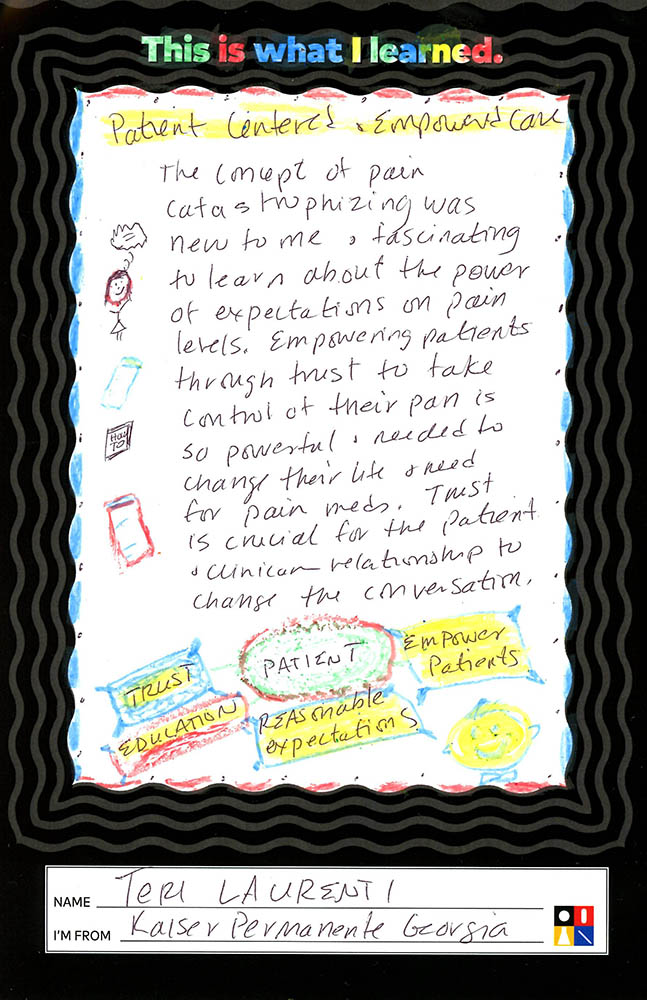 This is what I learned.
Patient Centered & Empowered Care
The concept of pain
catastrophizing was
new to me & fascinating
to learn about the power
of expectations on pain
levels. Empowering patients
through trust to take
control of their pan is
so powerful & needed to
change their life & need
for pain meds. Trust
is crucial for the patient
& clinican relationship to
change the conversation.
HOW
TO
PATIENT
EMPOWER
Patients
TRUST
EDUCATION
REASonable
expectations
NAME TERI LAURENTI
I'M FROM Kaiser Permanente Georgia